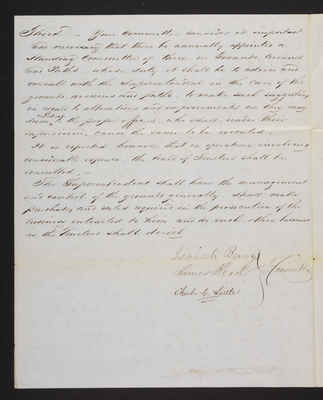 Third - Your Committee consider it important
and necessary that there be annually appointed a
Standing Committee of three on Grounds, Avenues
and Paths whose duty it shall be to advise and
consult with the Superintendent in the care of the
grounds, avenues and paths, to make such suggestions
in regard to alterations and improvements as they may
deem to the proper officers, who shall under their
supervision, cause the same to be executed.
It is expected however that in questions involving
considerable expense, the Board of Trustees shall be
consulted.
The Superintendent shall have the management
and control of the grounds generally, shall make
purchases and sales required in the prosecution of the
business entrusted to him and do such other business
as the Trustees shall direct
Committee
Chas. C. Little